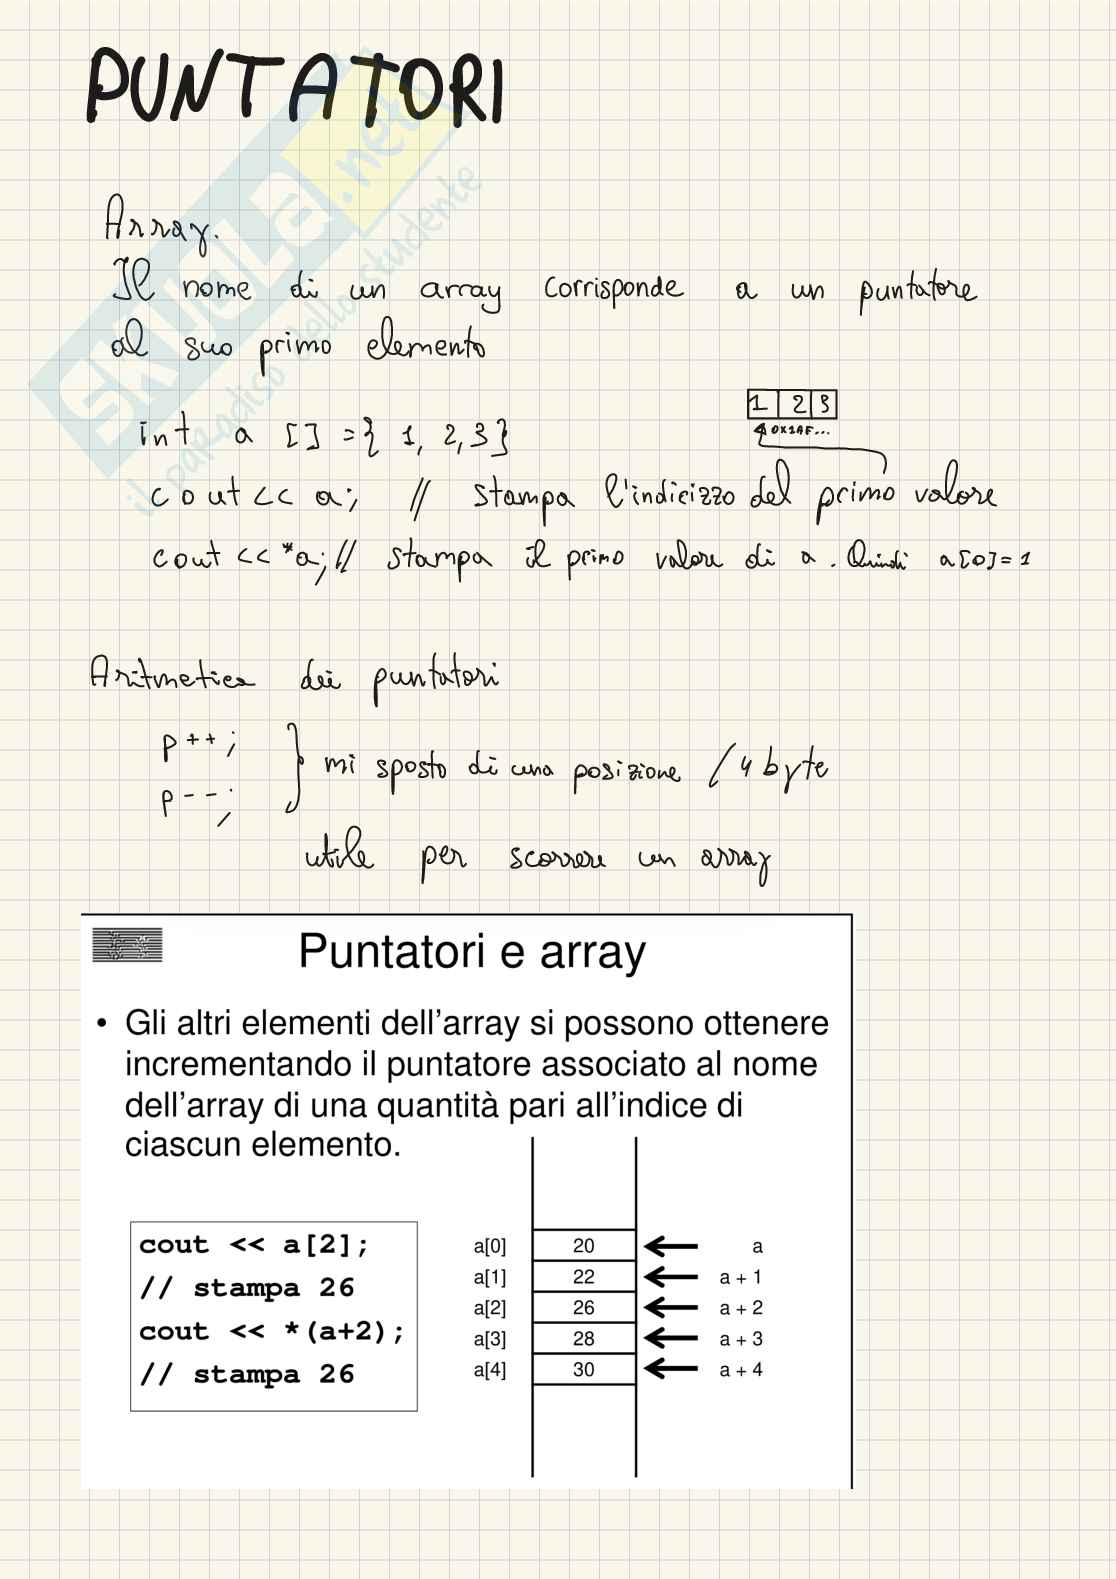 PUNTATORI
SKUOLA.net
il paradiso dello studente
Array.
Il nome di un array corrisponde a un puntatore
al suo primo elemento
1 2 3
0x1AF...
int a [] = { 1, 2, 3 }
cout << a; // stampa l'indicizzo del primo valore
cout << *a; // stampa il primo valore di a. Quindi a[0]=1
Aritmetica dei puntatori
p++;
p--;
mi sposto di una posizione / 4 byte
utile per scorrere un array
Puntatori e array
• Gli altri elementi dell'array si possono ottenere
incrementando il puntatore associato al nome
dell'array di una quantità pari all'indice di
ciascun elemento.
cout << a[2];
// stampa 26
cout << *(a+2);
// stampa 26
a[0] 20 a
a[1] 22 a + 1
a[2] 26 a + 2
a[3] 28 a + 3
a[4] 30 a + 4